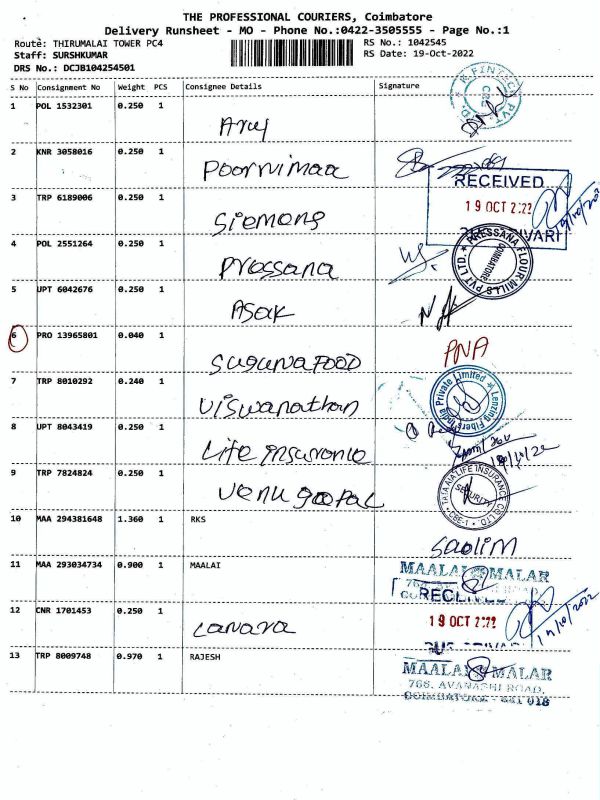 THE PROFESSIONAL COURIERS, Coimbatore
Delivery Runsheet - MO - Phone No.:0422-3505555 - Page No.:1
Route: THIRUMALAI TOWER PC4
RS No.: 1042545
Staff: SURSHKUMAR
RS Date: 19-Oct-2022
DRS No.: DCJB104254501
S No Consignment No Weight PCS Consignee Details Signature
1 POL 1532301 0.250 1 Aruj
2 KNR 3058016 0.250 1 Poornimaa
RECEIVED
3 TRP 6189006 0.250 1 Siemens
19 OCT 2022 19/10/202
4 POL 2551264 0.250 1 Pressana
PRESSANA FLOUR MILLS PVT LTD. COIMBATORE
5 UPT 6042676 0.250 1 Asak
6 PRO 13965801 0.040 1 Suguna FOOD PNA
7 TRP 8010292 0.240 1 Viswanathan
Lenzing Fibers India Private Limited
8 UPT 8043419 0.250 1 Life insurance
9 TRP 7824824 0.250 1 Venu goopal
TATA AIA LIFE INSURANCE CO LTD. CBE-1 SECURITY
10 MAA 294381648 1.360 1 RKS Saolim
11 MAA 293034734 0.900 1 MAALAI
MAALAI MALAR
RECEIVED
12 CNR 1701453 0.250 1 Canara
19 OCT 2022
13 TRP 8009748 0.970 1 RAJESH
MAALAI MALAR
768, AVANASHI ROAD,
COIMBATORE - 641 018